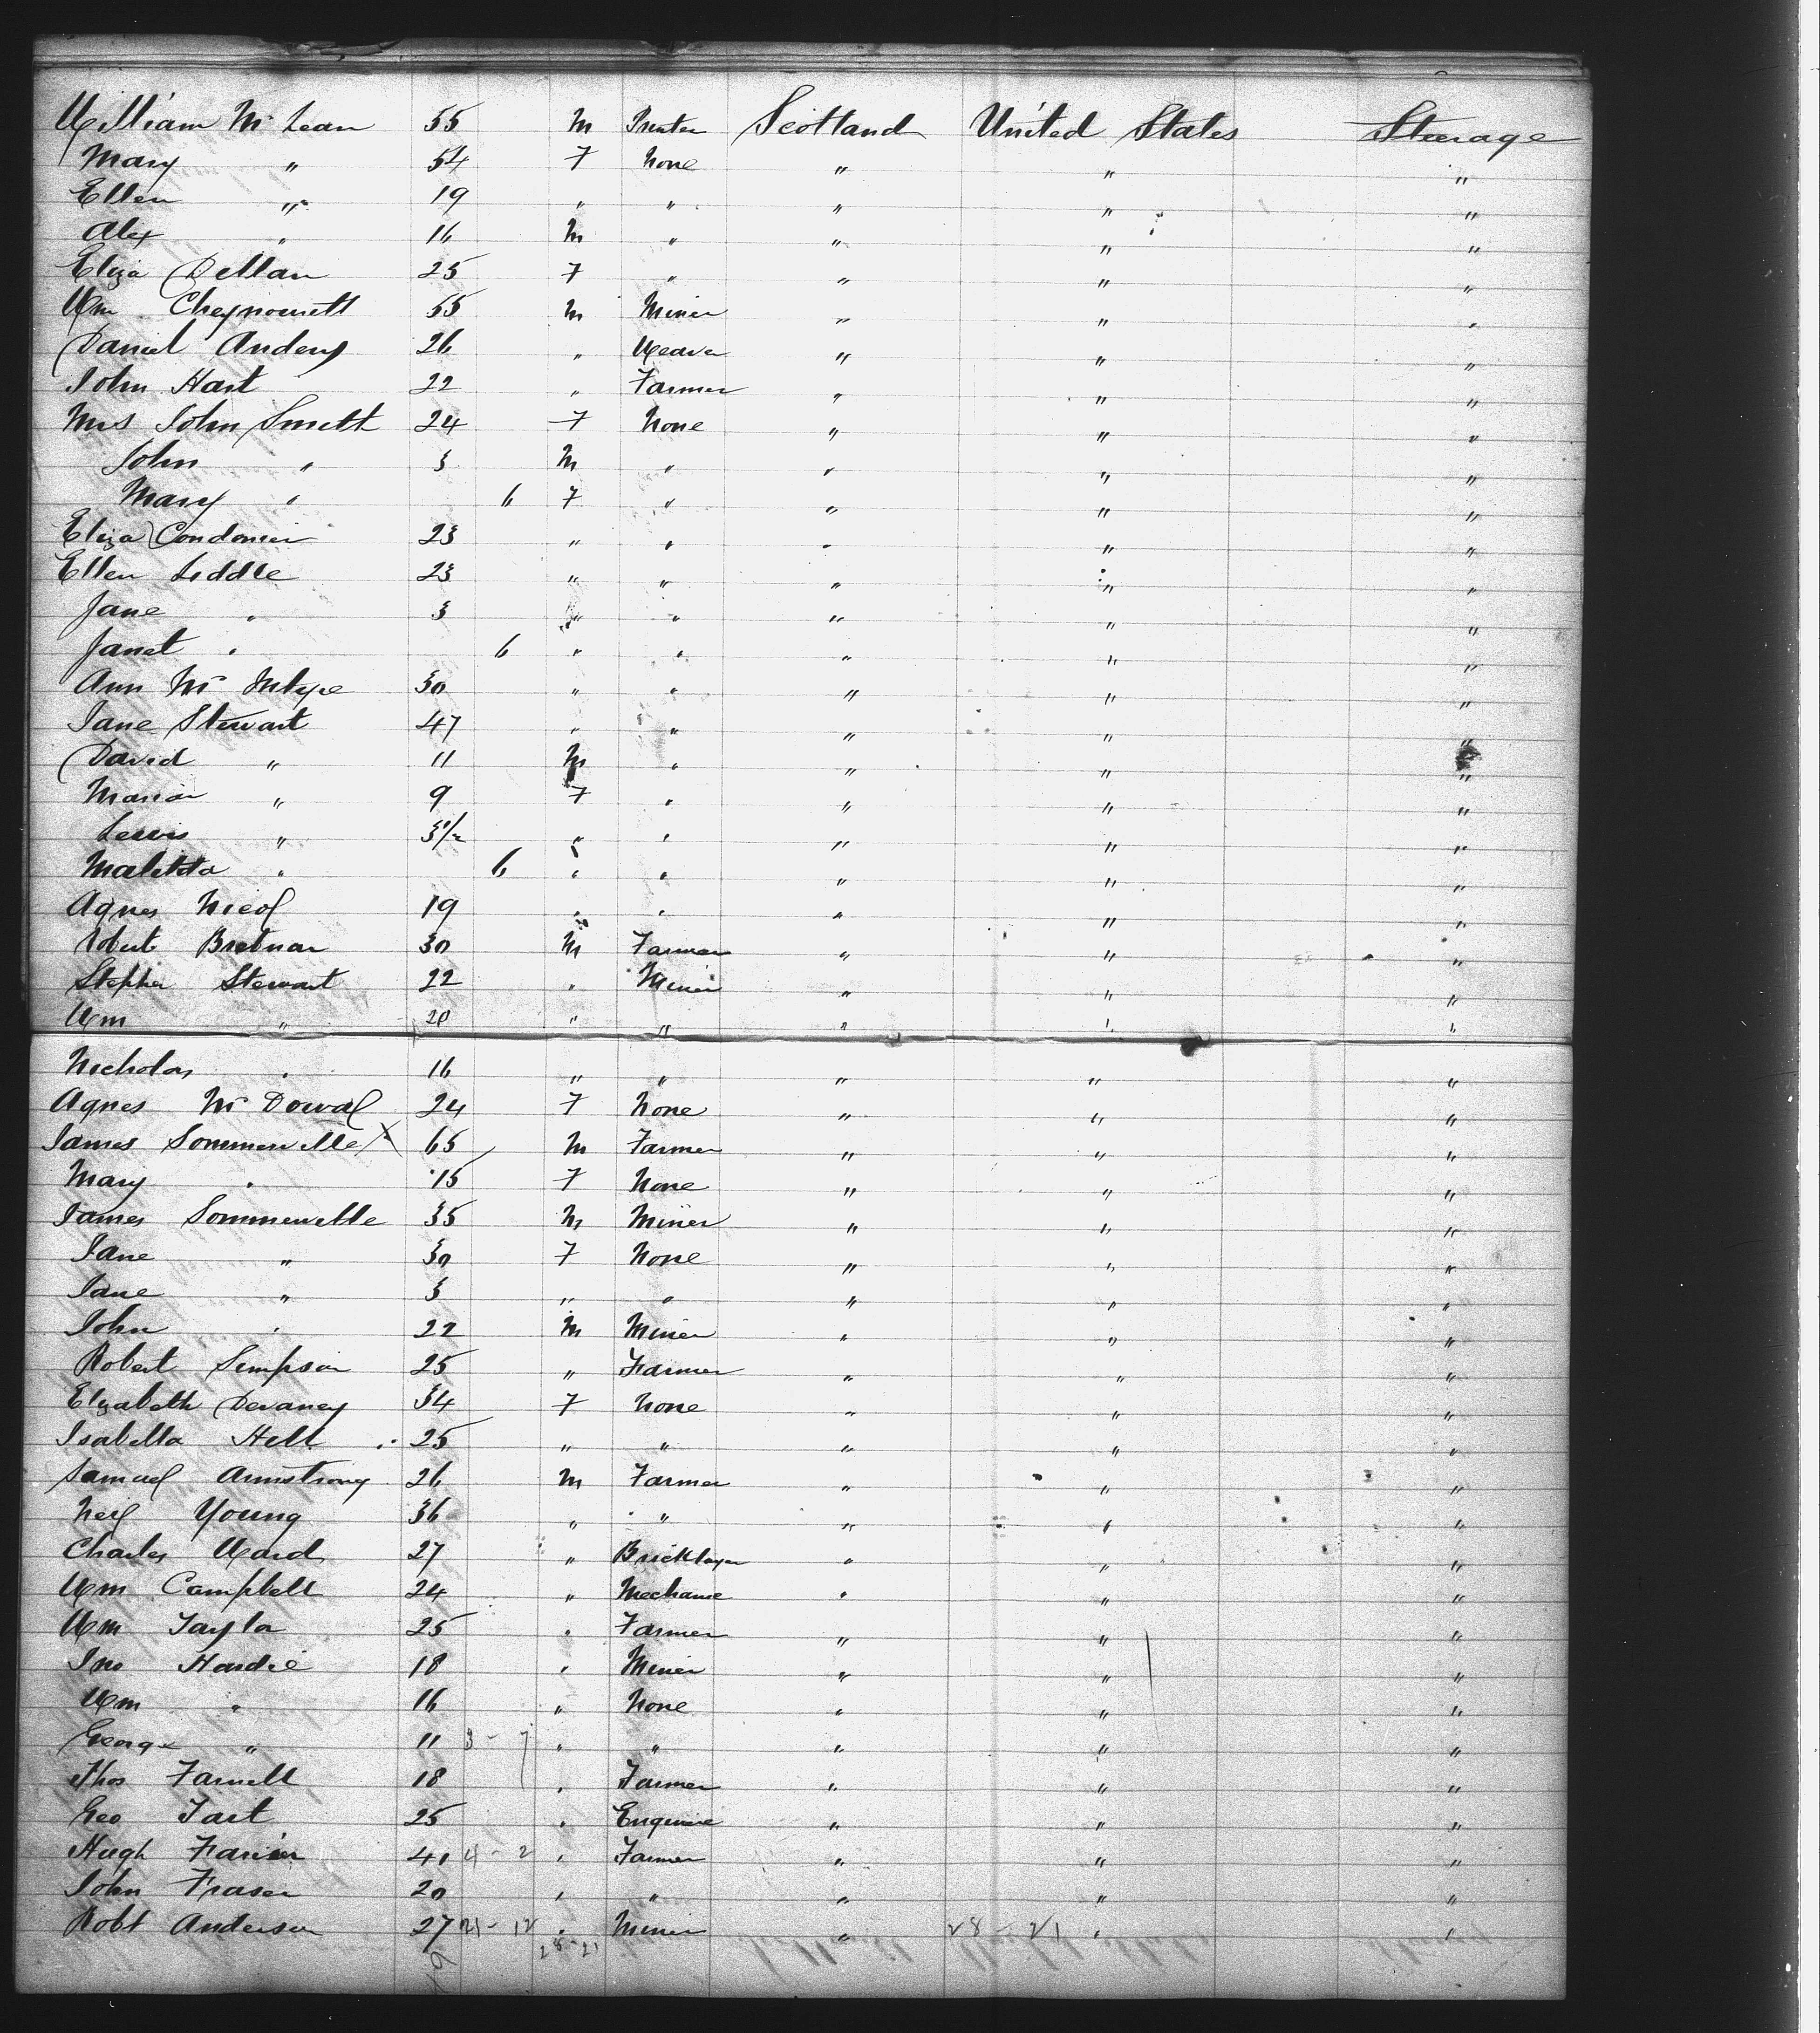 William Mc Lean 55 M Printer Scotland United States Steerage
Mary " 54 F None " " "
Ellen " 19 " " " " "
Alex " 16 M " " " "
Eliza 25 F " " " "
Wm 55 M Miner " " "
Daniel 26 " Weaver " " "
John Hart 22 " Farmer " " "
Mrs John Smith 24 F None " " "
John " 3 M " " " "
Mary " 6 F " " " "
Eliza 23 " " " " "
Ellen Liddle 23 " " " " "
Jane " 3 " " " " "
Janet " 6 " " " " "
Ann Mc Intyre 30 " " " " "
Jane Stewart 47 " " " " "
David " 11 M " " " "
Marion " 9 F " " " "
Lewis " 3 1/2 " " " " "
Matilda " 6 " " " " "
Agnes Nicol 19 " " " " "
Robert 30 M Farmer " " "
Stephen Stewart 22 " Miner " " "
Wm " 20 " " " " "
Nicholas " 16 " " " " "
Agnes Mc Dowal 24 F None " " "
James Sommerville X 65 M Farmer " " "
Mary " 15 F None " " "
James Sommerville 35 M Miner " " "
Jane " 30 F None " " "
Jane " 3 " " " " "
John " 22 M Miner " " "
Robert Simpson 25 " Farmer " " "
Elizabeth Devaney 34 F None " " "
Isabella Hill 25 " " " " "
Samuel Armstrong 26 M Farmer " " "
Neil Young 36 " " " " "
Charles Ward 27 " Bricklayer " " "
Wm Campbell 24 " Mechanic " " "
Wm Taylor 25 " Farmer " " "
Jno Hardie 18 " Miner " " "
Wm " 16 " None " " "
George " 11 3 - 7 " " " " "
Thos Farrell 18 " Farmer " " "
Geo Tait 25 " Engineer " " "
Hugh 40 4 - 2 " Farmer " " "
John Fraser 20 " " " " "
Robt Anderson 27 21 - 12 " Miner " 28 - 21 " "
28 - 21